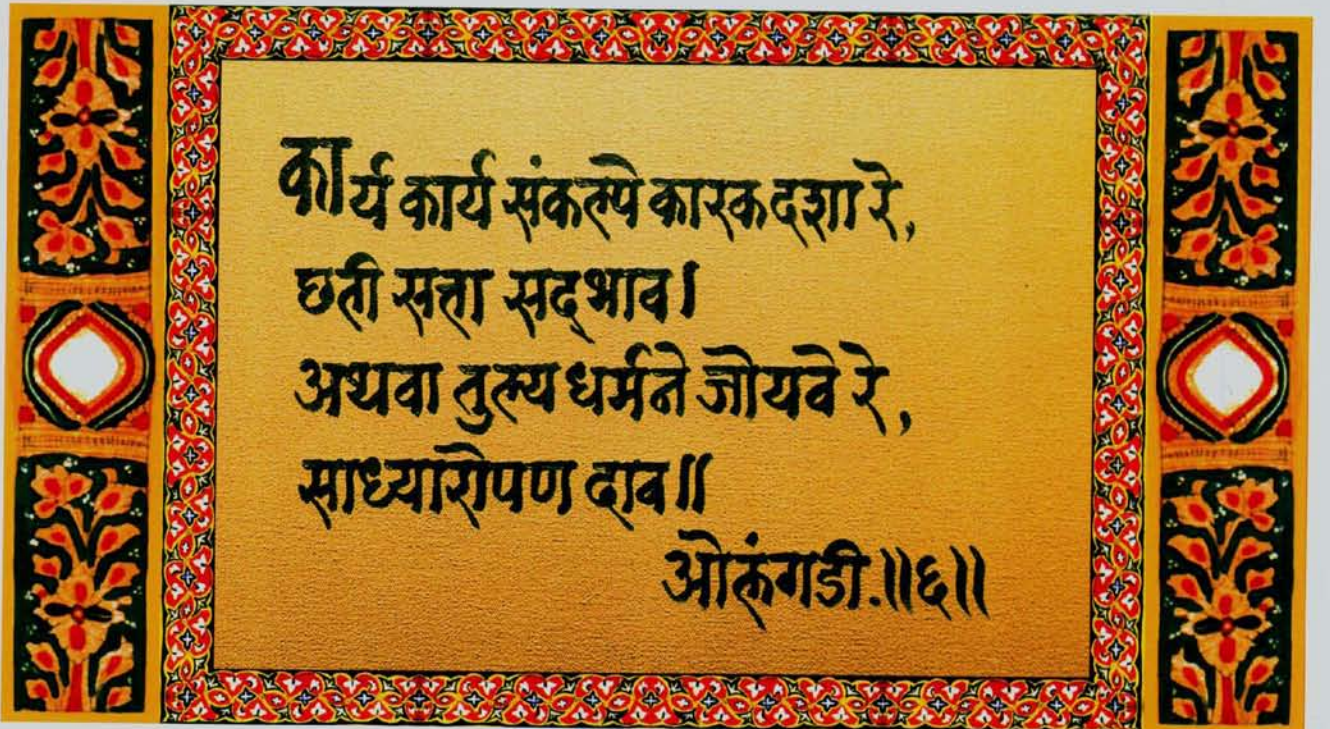 कार्य कार्य संकल्पे कारक दशा रे,
छती सत्ता सद्भाव।
अथवा तुल्य धर्मने जोयवे रे,
साध्यारोपण दाव॥
ओलंगडी.॥६॥